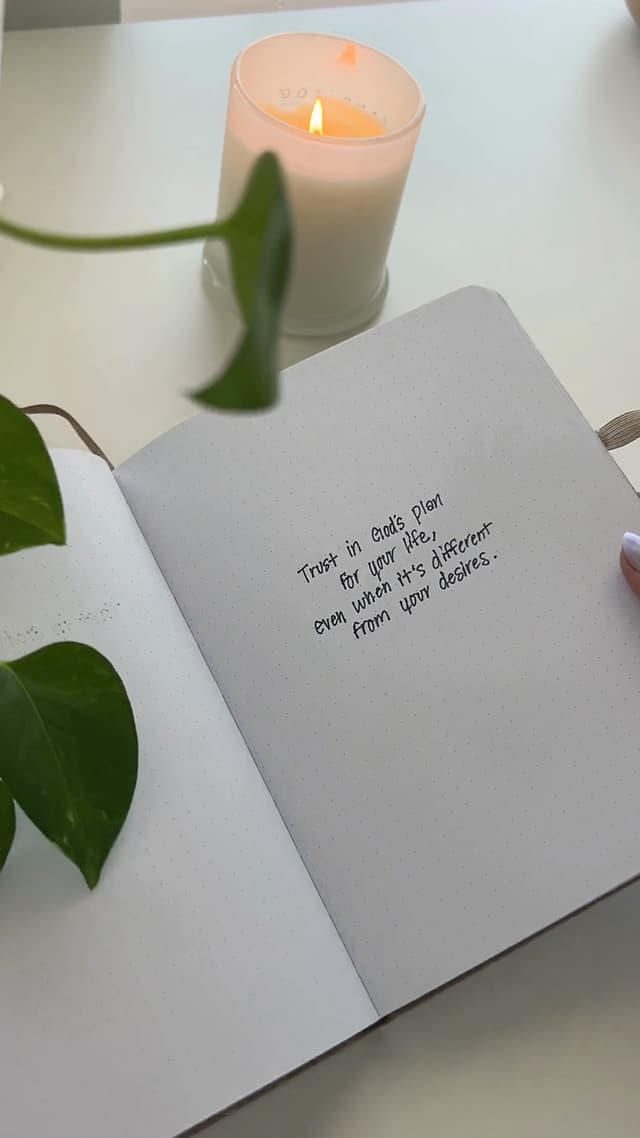 Trust in God's plan
for your life,
even when it's different
from your desires.